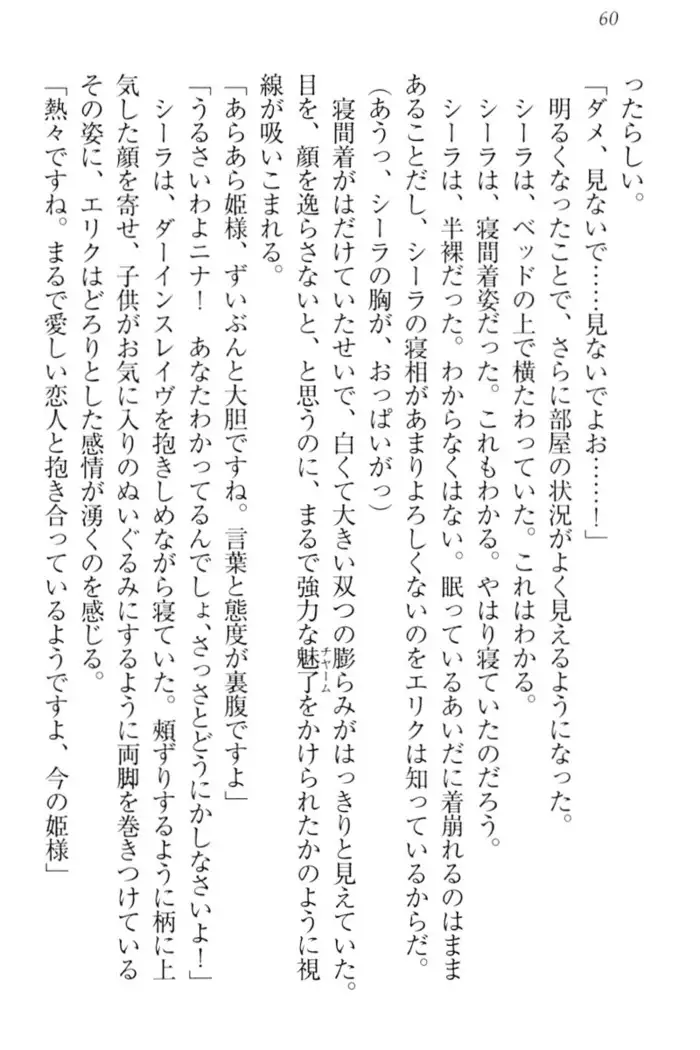 60
ったらしい。
「ダメ、見ないで……見ないでよお……！」
明るくなったことで、さらに部屋の状況がよく見えるようになった。
シーラは、ベッドの上で横たわっていた。これはわかる。
シーラは、寝間着姿だった。これもわかる。やはり寝ていたのだろう。
シーラは、半裸だった。わからなくはない。眠っているあいだに着崩れるのはまま
あることだし、シーラの寝相があまりよろしくないのをエリクは知っているからだ。
（あうっ、シーラの胸が、おっぱいがっ）
寝間着がはだけていたせいで、白くて大きい双つの膨らみがはっきりと見えていた。
目を、顔を逸らさないと、と思うのに、まるで強力な魅了をかけられたかのように視
チャーム
線が吸いこまれる。
「あらあら姫様、ずいぶんと大胆ですね。言葉と態度が裏腹ですよ」
「うるさいわよニナ！　あなたわかってるんでしょ、さっさとどうにかしなさいよ！」
シーラは、ダーインスレイヴを抱きしめながら寝ていた。頬ずりするように柄に上
気した顔を寄せ、子供がお気に入りのぬいぐるみにするように両脚を巻きつけている
その姿に、エリクはどろりとした感情が湧くのを感じる。
「熱々ですね。まるで愛しい恋人と抱き合っているようですよ、今の姫様」